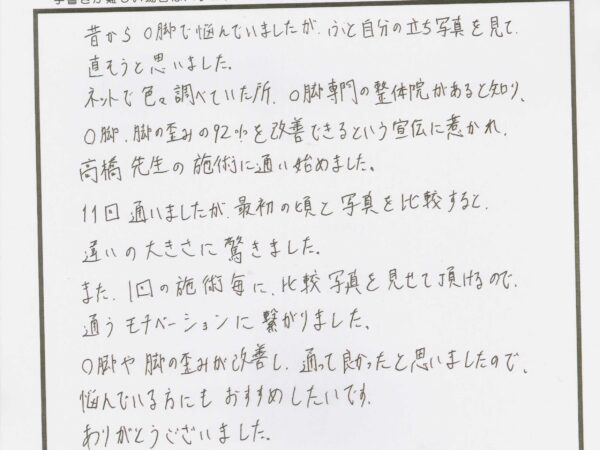 昔からO脚で悩んでいましたが、ふと自分の立ち写真を見て、
直そうと思いました。
ネットで色々調べていた所、O脚専門の整体院があると知り、
O脚、脚の歪みの92%を改善できるという宣伝に惹かれ、
高橋先生の施術に通い始めました。
11回通いましたが、最初の頃と写真を比較すると、
違いの大きさに驚きました。
また、1回の施術毎に、比較写真を見せて頂けるので、
通うモチベーションに繋がりました。
O脚や脚の歪みが改善し、通って良かったと思いましたので、
悩んでいる方にもおすすめしたいです。
ありがとうございました。